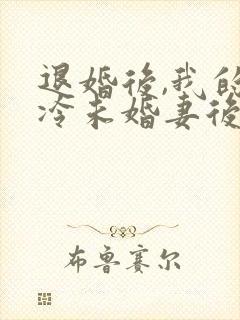 退婚後,我的
冷未婚妻後
布鲁赛尔